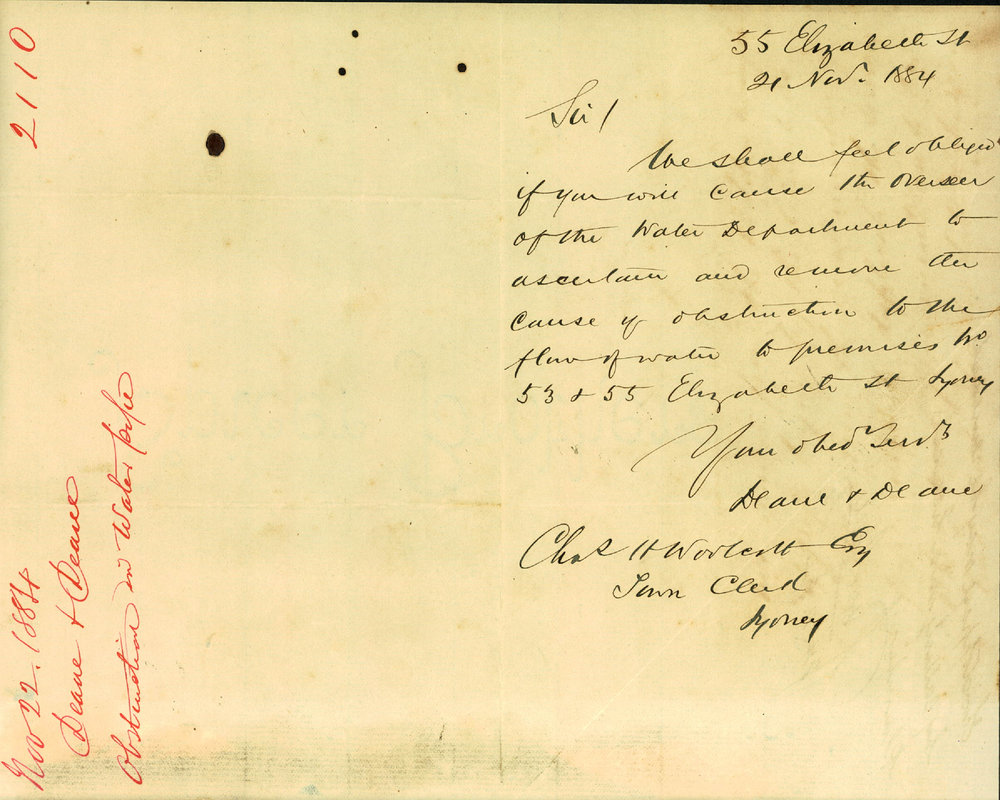 2110
Nov 22. 1884
Deane & Deane
Obstruction in Water pipe
55 Elizabeth St
21 Nov. 1884
Sir/
We shall feel obliged
if you will cause the Overseer
of the Water Department to
ascertain and remove the
cause of obstruction to the
flow of water to premises No
53 & 55 Elizabeth St Sydney
Your obedt Servts
Deane & Deane
Chas H Woolcott Esq
Town Clerk
Sydney